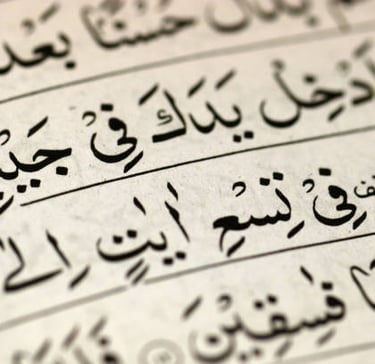 بَدَّلَ حُسْنًا بَعْدَ
اَدْخِلْ يَدَكَ فِيْ جَيْبِ
فِيْ تِسْعِ اٰيٰتٍ اِلٰى
فٰسِقِيْنَ